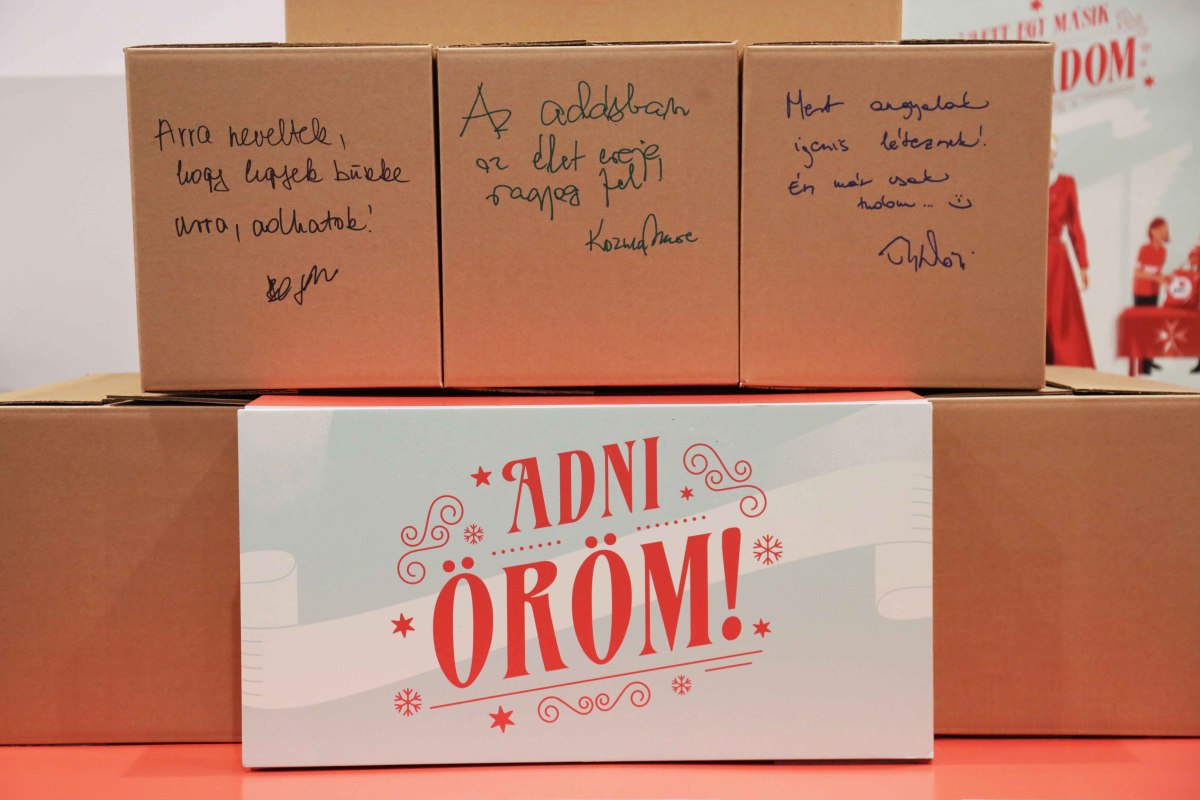 EGY MÁSIK
DOM
Arra neveltek,
hogy legyek büszke
arra, adhatok!
Az adásban
az élet ereje
ragyog fel!
Kozma Imre
Mert angyalok
igenis léteznek!
Én már csak
tudom... :)
ADNI
ÖRÖM!